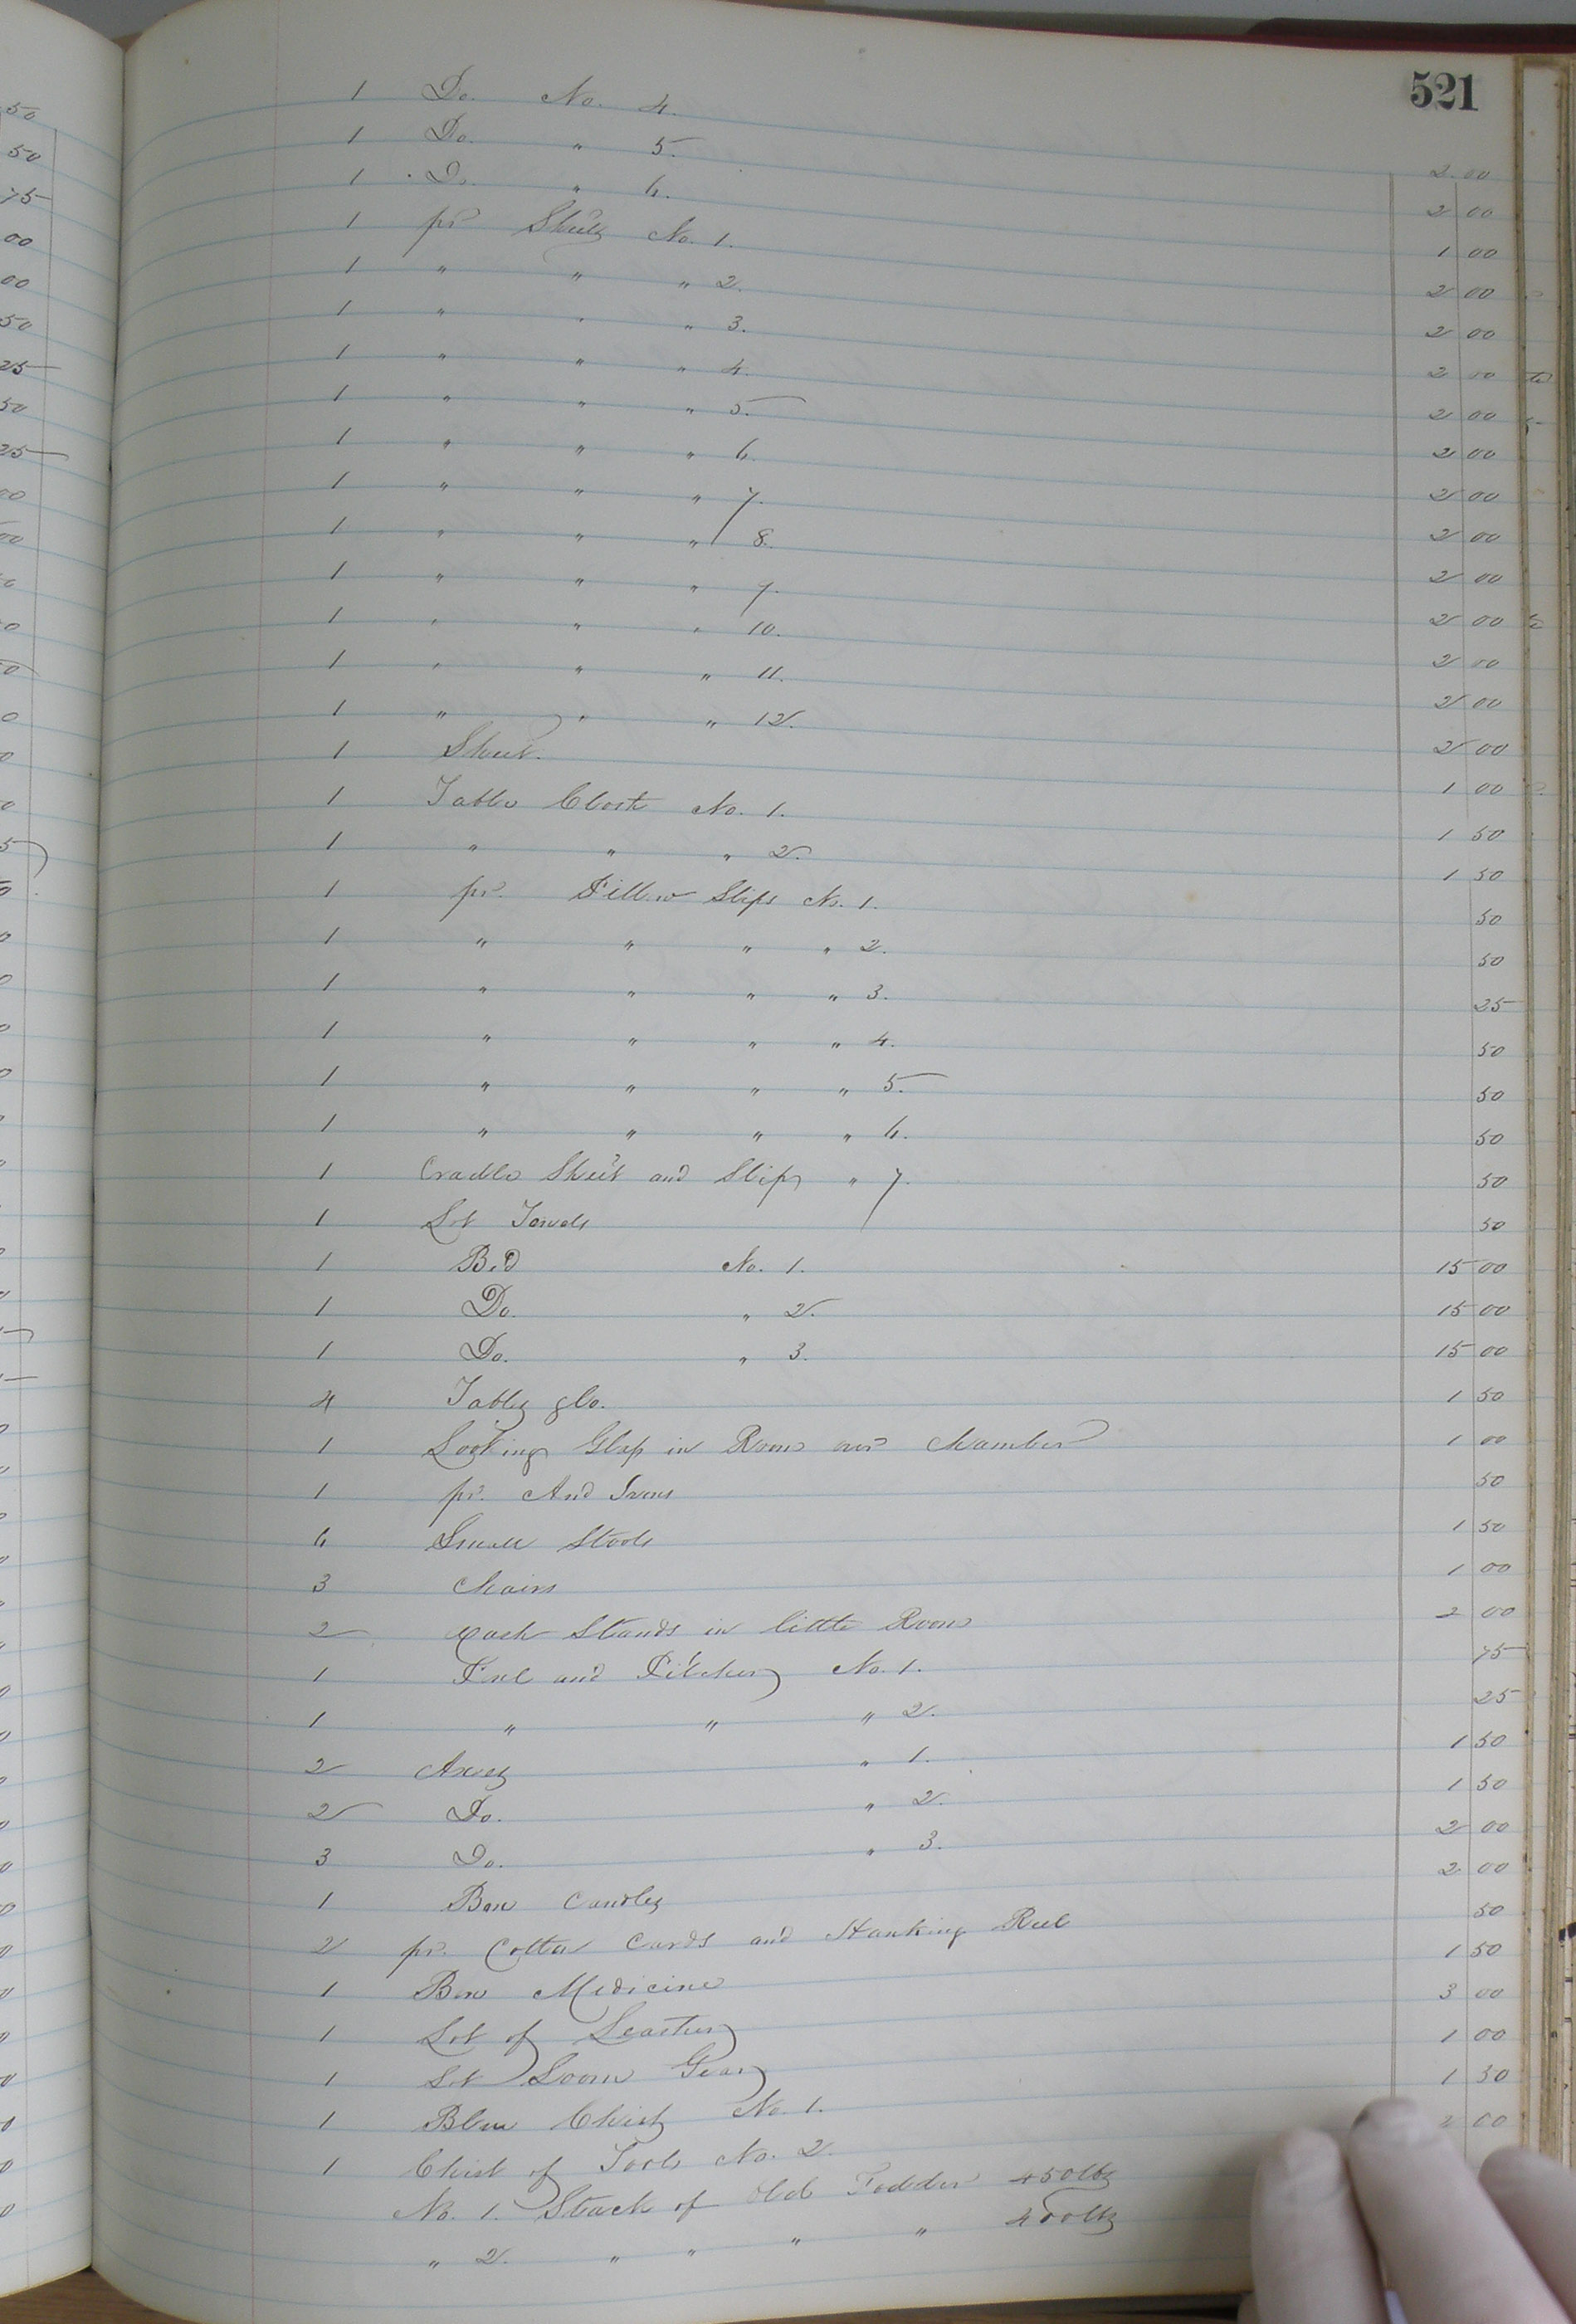 521
1 Do. No. 4. 2.00
1 Do. " 5. 2 00
1 Do. " 6. 1 00
1 pr Sheets No. 1. 2 00
1 " " " 2. 2 00
1 " " " 3. 2 00
1 " " " 4. 2 00
1 " " " 5. 2 00
1 " " " 6. 2 00
1 " " " 7. 2 00
1 " " " 8. 2 00
1 " " " 9. 2 00
1 " " " 10. 2 00
1 " " " 11. 2 00
1 " " " 12. 2 00
1 Sheet. 1 00
1 Table Cloth No. 1. 1 50
1 " " " 2. 1 50
1 pr. Pillow Slips No. 1. 50
1 " " " " 2. 50
1 " " " " 3. 25
1 " " " " 4. 50
1 " " " " 5. 50
1 " " " " 6. 50
1 Cradle Sheet and Slips " 7. 50
1 Lot Towels 50
1 Bed No. 1. 15 00
1 Do. " 2. 15 00
1 Do. " 3. 15 00
4 Tables &c. 1 50
1 Looking Glass in Room over Chamber 1 00
1 pr. And Irons 50
6 Small Stools 1 50
3 Chairs 1 00
2 Wash Stands in little Room 2 00
1 and Pitcher No. 1. 75
1 " " " 2. 25
2 Axes " 1. 1 50
2 Do. " 2. 1 50
3 Do. " 3. 2 00
1 Box Candles 2 00
2 pr. Cotton Cards and Hanking Reel 50
1 Box Medicine 1 50
1 Lot of Leather 3 00
1 Lot Loom Gear 1 00
1 Blue Chest No. 1. 1 50
1 Chest of Tools No. 2. 2 00
No. 1. Stack of Old Fodder 450lbs
" 2. " " " " 400lbs